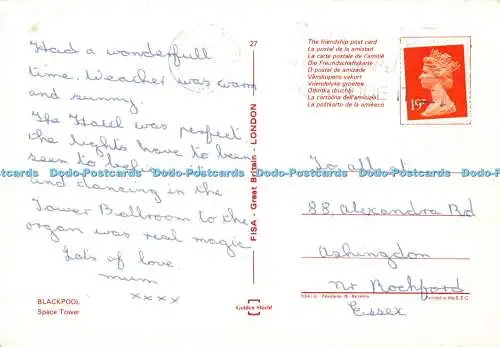 Had a wonderfull
time. Weather was warm
and sunny.
The Hotel was perfect.
The lights have to been
seen to believe it
and dancing in the
Tower Ballroom to the
organ was real magic
Lots of love.
mum
xxxx
BLACKPOOL
Space Tower
27
FISA - Great Britain - LONDON
Golden Shield
The friendship post card
La postal de la amistad
La carte postale de l'amitié
Die Freundschaftskarte
O postal de amizade
Vänskapens vykort
Vriendelyke groetos
La cartolina dell'amicizia
19P
To all at
88, Alexandra Rd
Ashingdon
Nr Rochford
Essex
Printed in the E.E.C.
Dodo-Postcards Dodo-Postcards Dodo-Postcards Dodo-Postcards